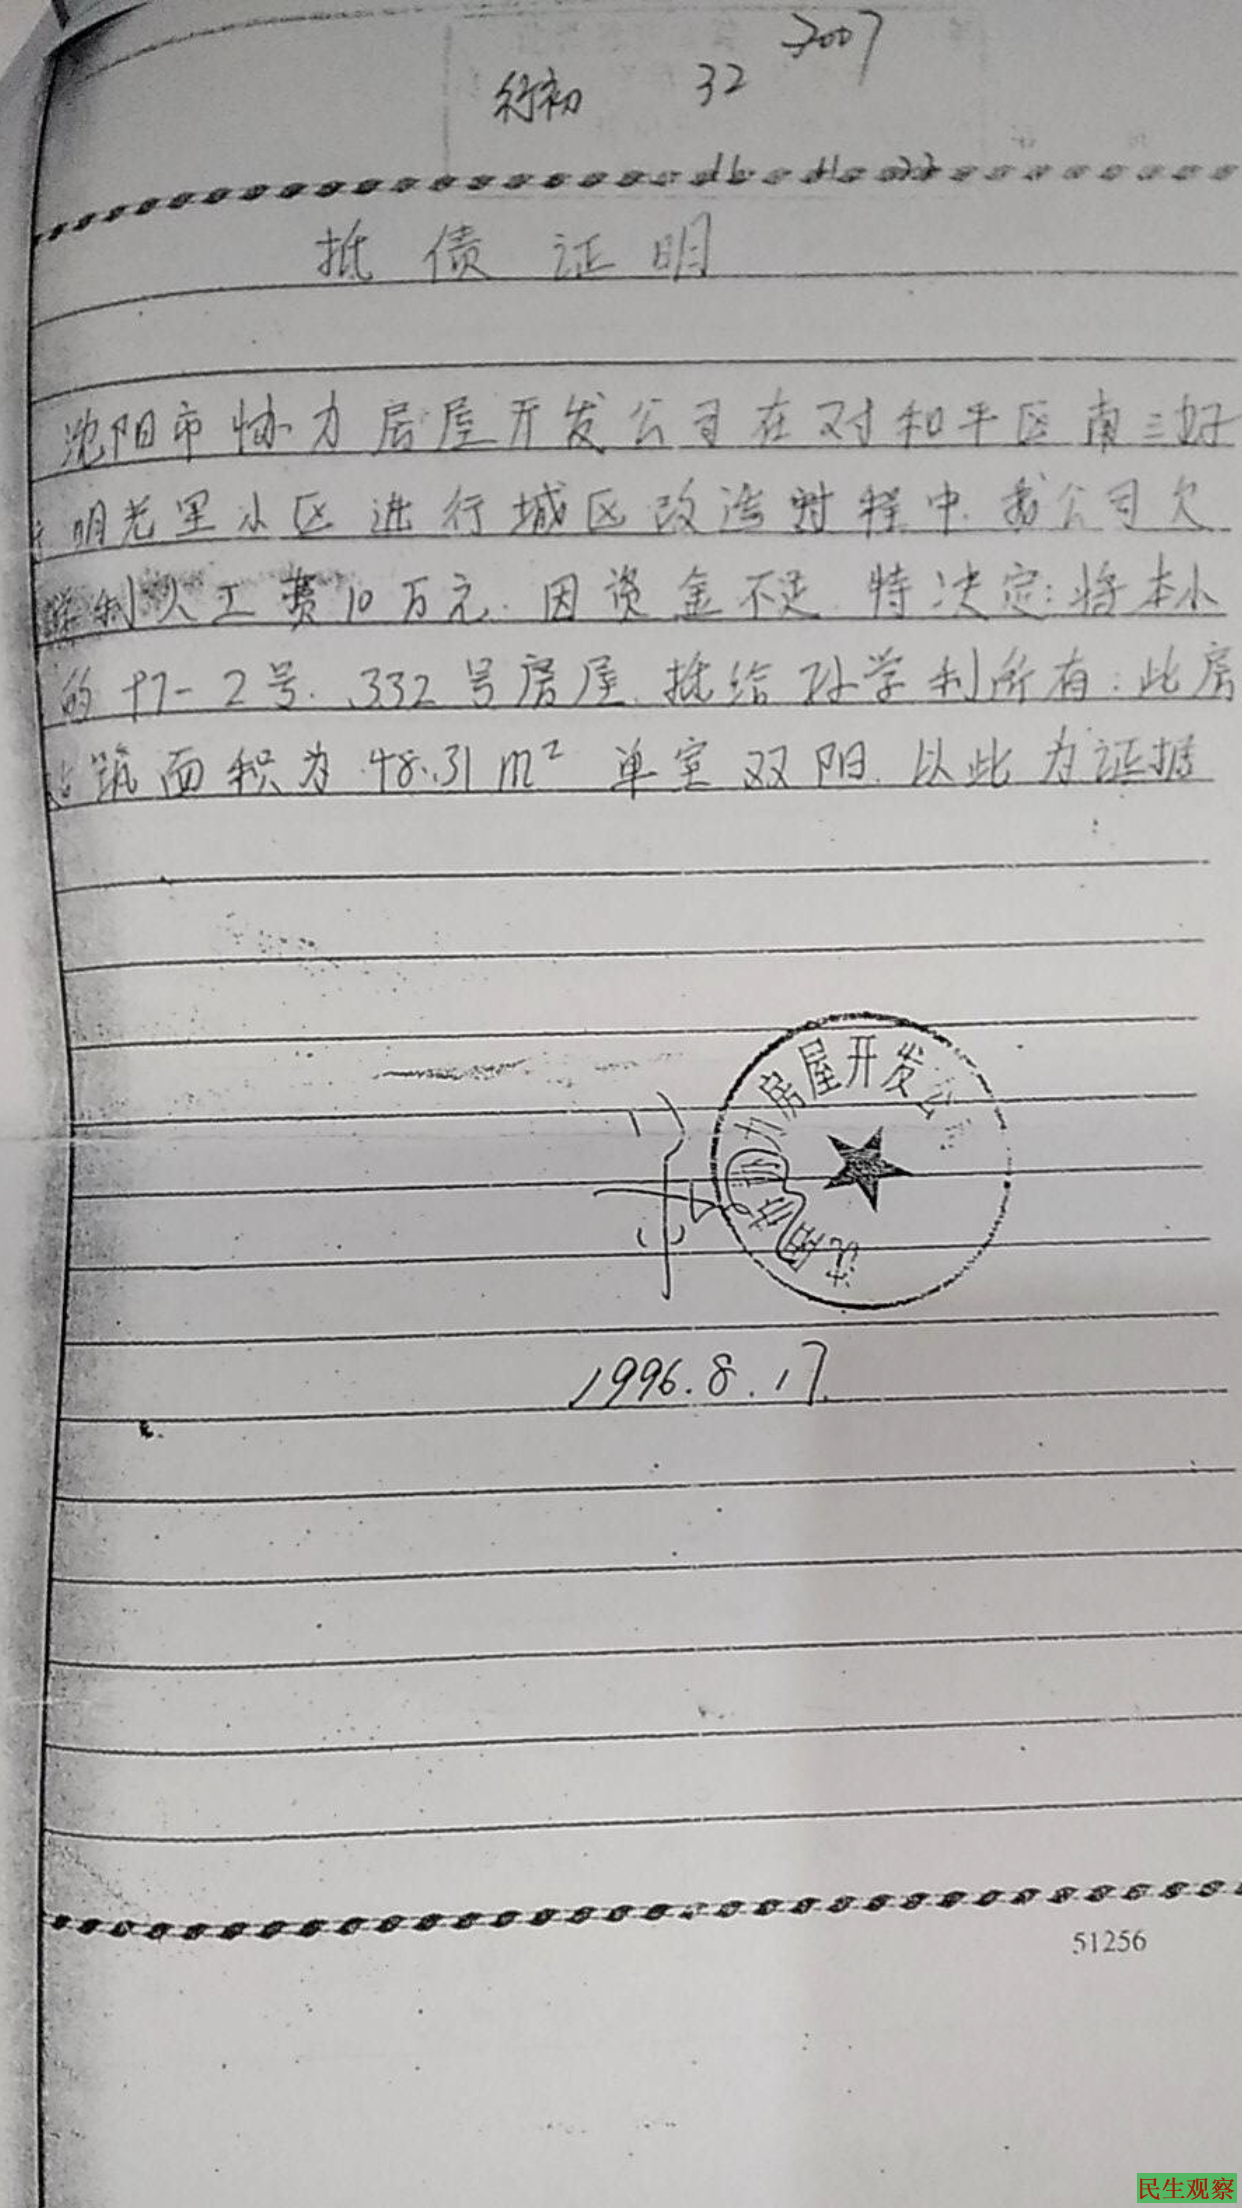 2007
行初 32
11 22
抵债证明
沈阳市协力房屋开发公司在对和平区南三好
明光里小区进行城区改造过程中.我公司欠
学利人工费10万元.因资金不足.特决定:将本小
的 47-2号.332号房屋.抵给孙学利所有.此房
建筑面积为48.31m² 单室双阳.以此为证据
沈阳市协力房屋开发公司
1996.8.17.
51256
民生观察